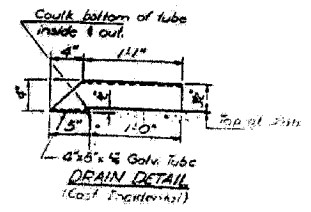 Caulk bottom of tube
inside & out.
4" 1'-1"
4"
5" 1'-0"
Top of
4"x6"x ¼" Galv. Tube
DRAIN DETAIL
(Cost Incidental)